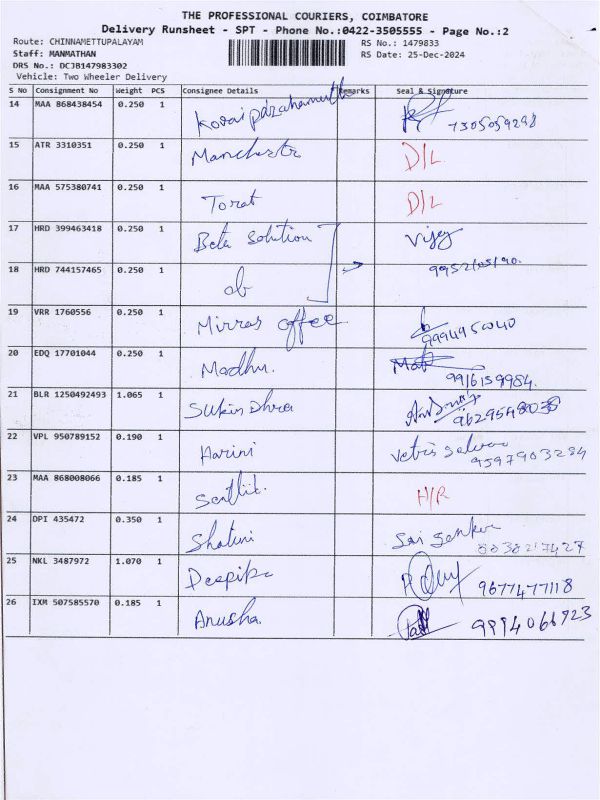 THE PROFESSIONAL COURIERS, COIMBATORE
Delivery Runsheet - SPT - Phone No.:0422-3505555 - Page No.:2
Route: CHINNAMETTUPALAYAM RS No.: 1479833
Staff: MANMATHAN RS Date: 25-Dec-2024
DRS No.: DCJB147983302
Vehicle: Two Wheeler Delivery
S No Consignment No Weight PCS Consignee Details Remarks Seal & Signature
14 MAA 868438454 0.250 1
7305059298
15 ATR 3310351 0.250 1 Manchestr D/L
16 MAA 575380741 0.250 1 Torat D/L
17 HRD 399463418 0.250 1 Beta Solution Vijey
18 HRD 744157465 0.250 1 do
19 VRR 1760556 0.250 1 Mirras office
9994950040
20 EDQ 17701044 0.250 1 Madhu.
9916159984.
21 BLR 1250492493 1.065 1
22 VPL 950789152 0.190 1 Harini Vetri Selvan
9597903284
23 MAA 868008066 0.185 1 H/R
24 DPI 435472 0.350 1 Shalini Sai Senker
8838217427
25 NKL 3487972 1.070 1 Deepika 9677477118
26 IXM 507585570 0.185 1 Anusha. 9994066923